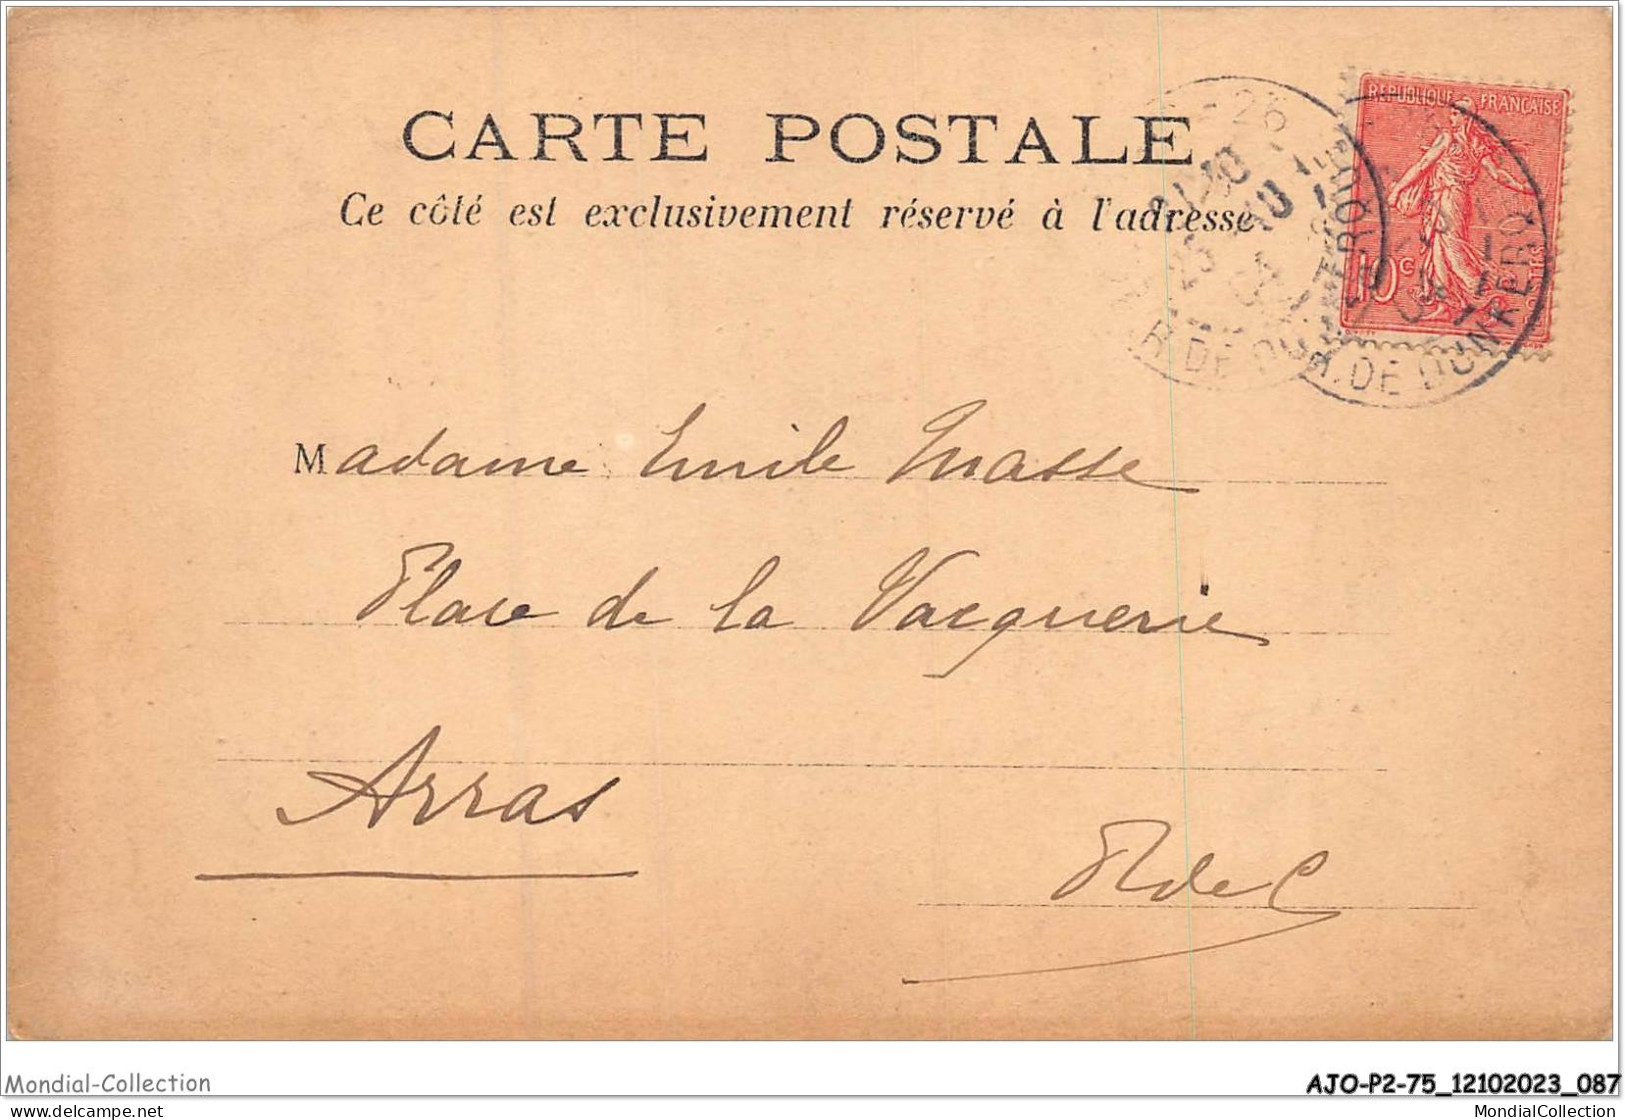 CARTE POSTALE
Ce côté est exclusivement réservé à l'adresse
REPUBLIQUE FRANÇAISE
10c
R. DE DUNKERQUE
Madame Emile Masse
Place de la Vacquerie
Arras
P de C
Mondial-Collection
AJO-P2-75_12102023_087
www.delcampe.net
MondialCollection